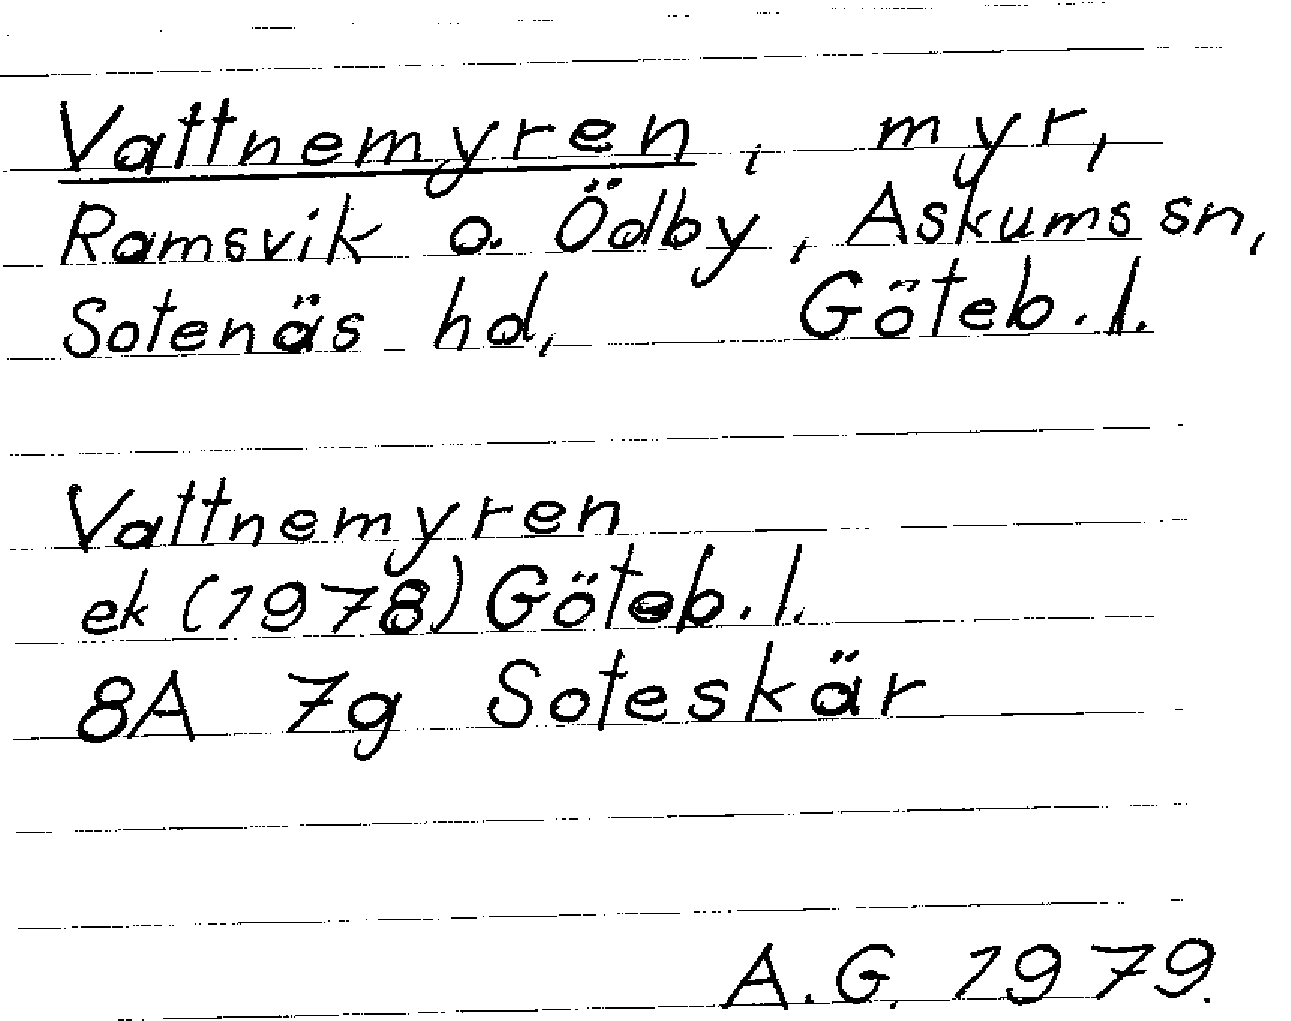 Vattnemyren, myr,
Ramsvik o. Ödby, Askums sn,
Sotenäs hd, Göteb. l.
Vattnemyren
ek (1978) Göteb. l.
8A 7g Soteskär
A.G. 1979.